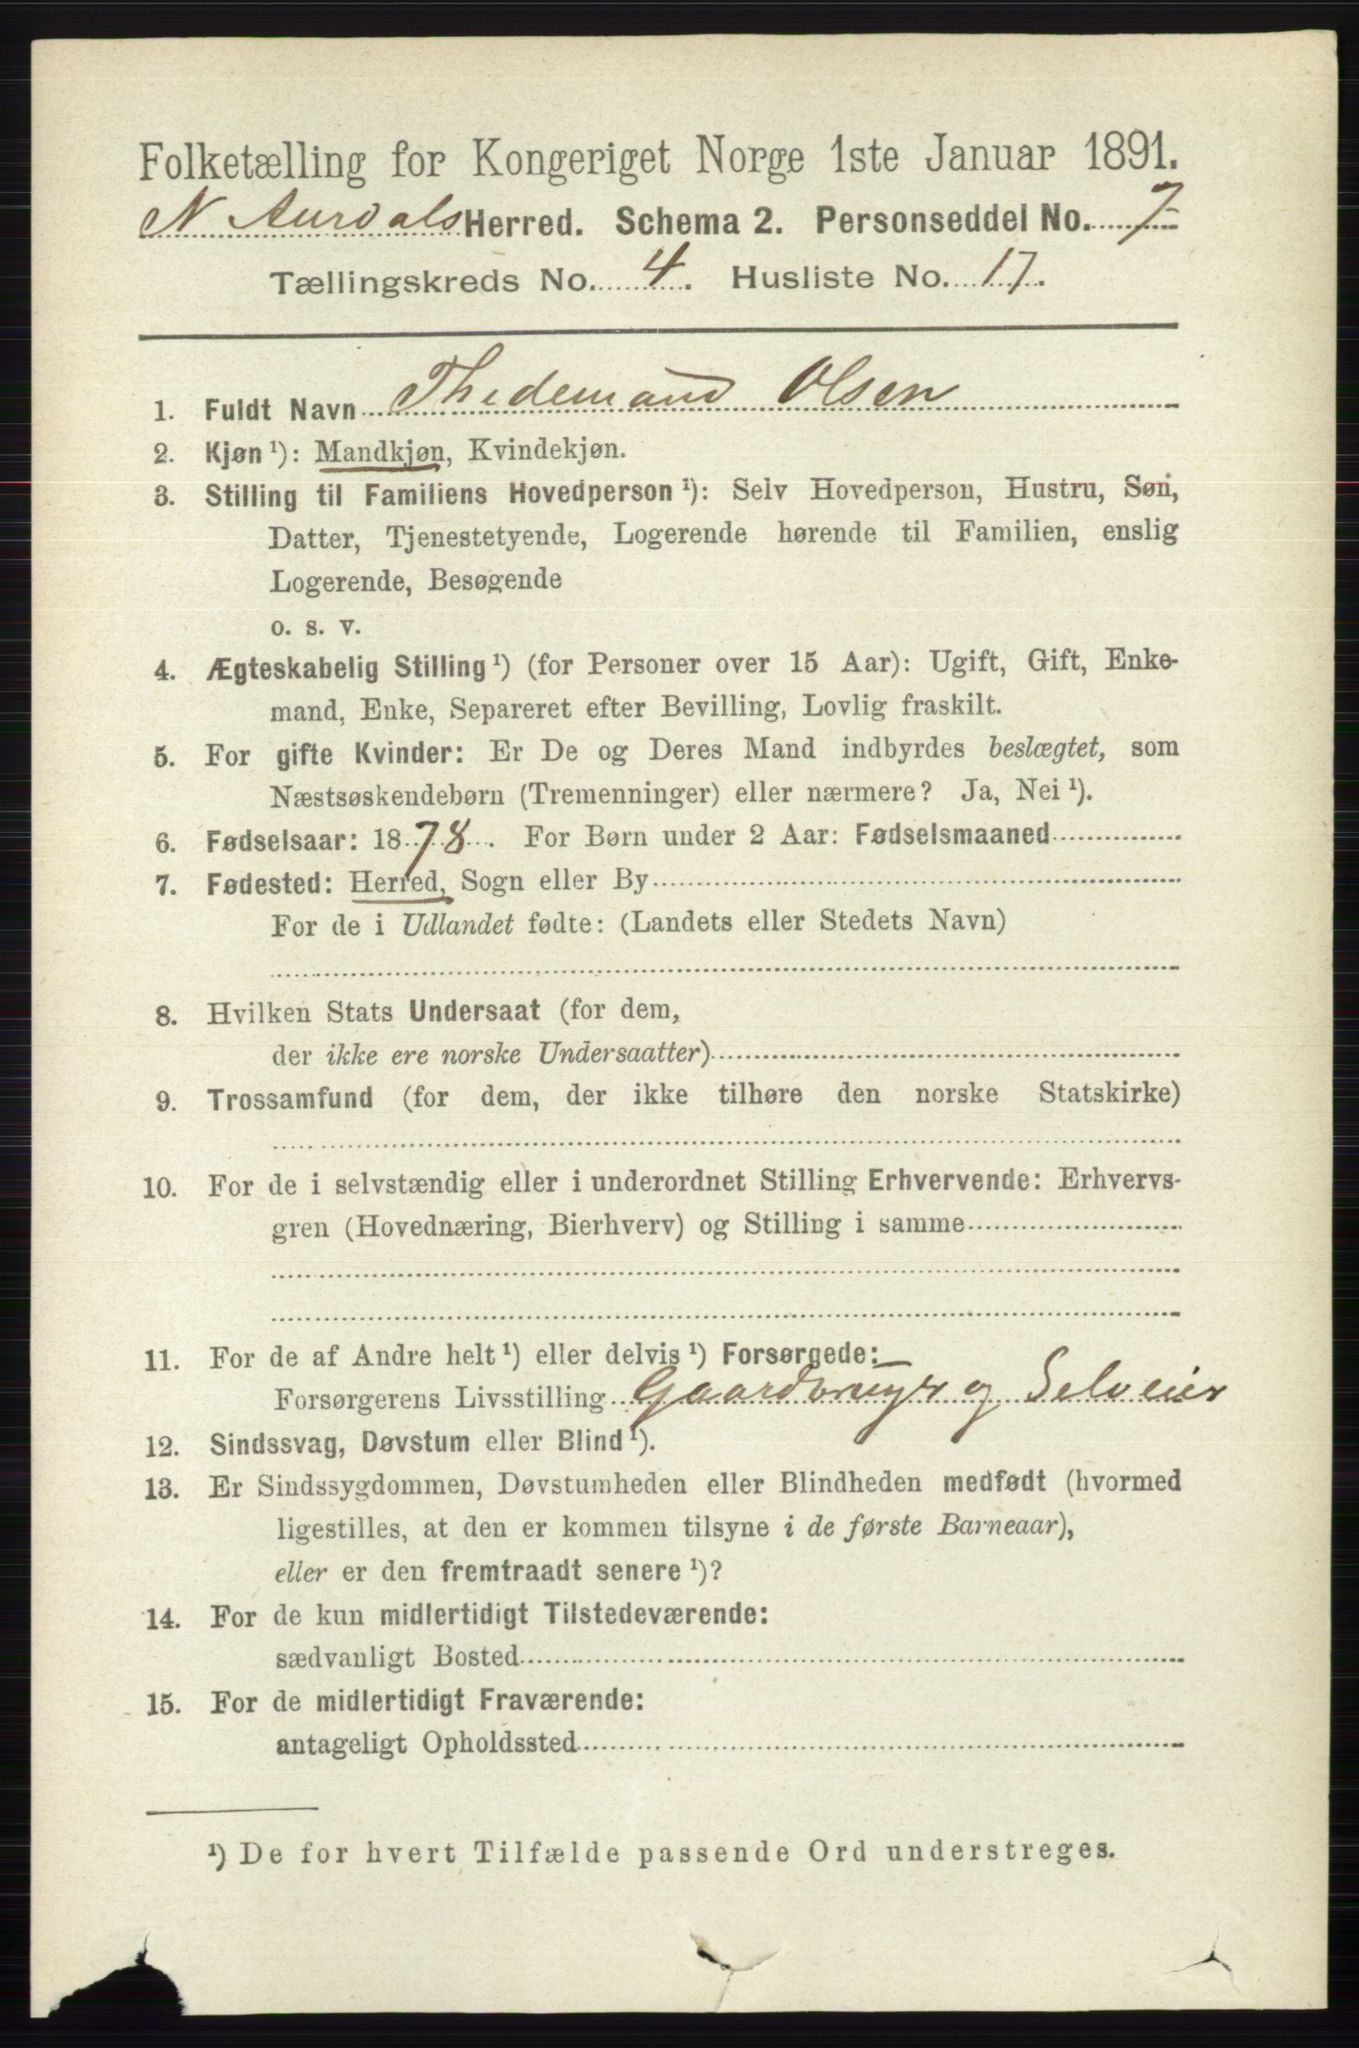 Folketælling for Kongeriget Norge 1ste Januar 1891.
N. Aurdals Herred. Schema 2. Personseddel No. 7
Tællingskreds No. 4. Husliste No. 17.
1. Fuldt Navn Thidemand Olsen
2. Kjøn ¹): Mandkjøn, Kvindekjøn.
3. Stilling til Familiens Hovedperson ¹): Selv Hovedperson, Hustru, Søn,
Datter, Tjenestetyende, Logerende hørende til Familien, enslig
Logerende, Besøgende
o. s. v.
4. Ægteskabelig Stilling ¹) (for Personer over 15 Aar): Ugift, Gift, Enke-
mand, Enke, Separeret efter Bevilling, Lovlig fraskilt.
5. For gifte Kvinder: Er De og Deres Mand indbyrdes beslægtet, som
Næstsøskendebørn (Tremenninger) eller nærmere? Ja, Nei ¹).
6. Fødselsaar: 1878. For Børn under 2 Aar: Fødselsmaaned
7. Fødested: Herred, Sogn eller By
For de i Udlandet fødte: (Landets eller Stedets Navn)
8. Hvilken Stats Undersaat (for dem,
der ikke ere norske Undersaatter)
9. Trossamfund (for dem, der ikke tilhøre den norske Statskirke)
10. For de i selvstændig eller i underordnet Stilling Erhvervende: Erhvervs-
gren (Hovednæring, Bierhverv) og Stilling i samme
11. For de af Andre helt ¹) eller delvis ¹) Forsørgede:
Forsørgerens Livsstilling Gaardbruger og Selveier
12. Sindssvag, Døvstum eller Blind ¹).
13. Er Sindssygdommen, Døvstumheden eller Blindheden medfødt (hvormed
ligestilles, at den er kommen tilsyne i de første Barneaar),
eller er den fremtraadt senere ¹)?
14. For de kun midlertidigt Tilstedeværende:
sædvanligt Bosted
15. For de midlertidigt Fraværende:
antageligt Opholdssted
¹) De for hvert Tilfælde passende Ord understreges.